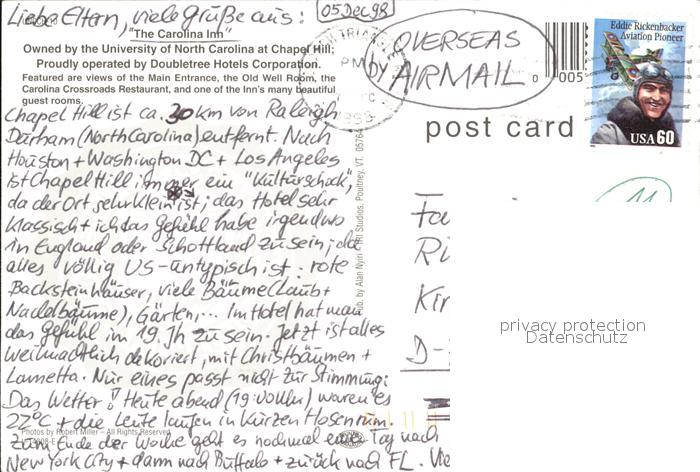 Liebe Eltern, viele Grüße aus:
05 Dec 98
"The Carolina Inn"
Owned by the University of North Carolina at Chapel Hill;
Proudly operated by Doubletree Hotels Corporation.
Featured are views of the Main Entrance, the Old Well Room, the
Carolina Crossroads Restaurant, and one of the Inn's many beautiful
guest rooms.
Chapel Hill ist ca. 30 km von Raleigh
Durham (North Carolina) entfernt. Nach
Houston + Washington DC + Los Angeles
ist Chapel Hill immer ein "Kulturschock",
da der Ort sehr klein ist; das Hotel sehr
klassisch + ich das Gefühl habe irgendwo
in England oder Schottland zu sein; da
alles völlig US-untypisch ist: rote
Backsteinhäuser, viele Bäume (Laub+
Nadelbäume), Gärten,... Im Hotel hat man
das Gefühl im 19. Jh zu sein. Jetzt ist alles
weihnachtlich dekoriert, mit Christbäumen +
Lametta. Nur eines passt nicht zur Stimmung:
Das Wetter! Heute abend (19:00 Uhr) waren es
27°C + die Leute laufen in kurzen Hosen rum.
Photos by Robert Miller – All Rights Reserved
Zum Ende der Woche geht es nochmal einen Tag nach
New York City + dann nach Buffalo + zurück nach FL.
OVERSEAS
by AIRMAIL
PM
0 005
Eddie Rickenbacker
Aviation Pioneer
USA 60
post card
Pub. by Alan Nyiri - IRI Studios, Poultney, VT. 05764
D-
privacy protection
Datenschutz